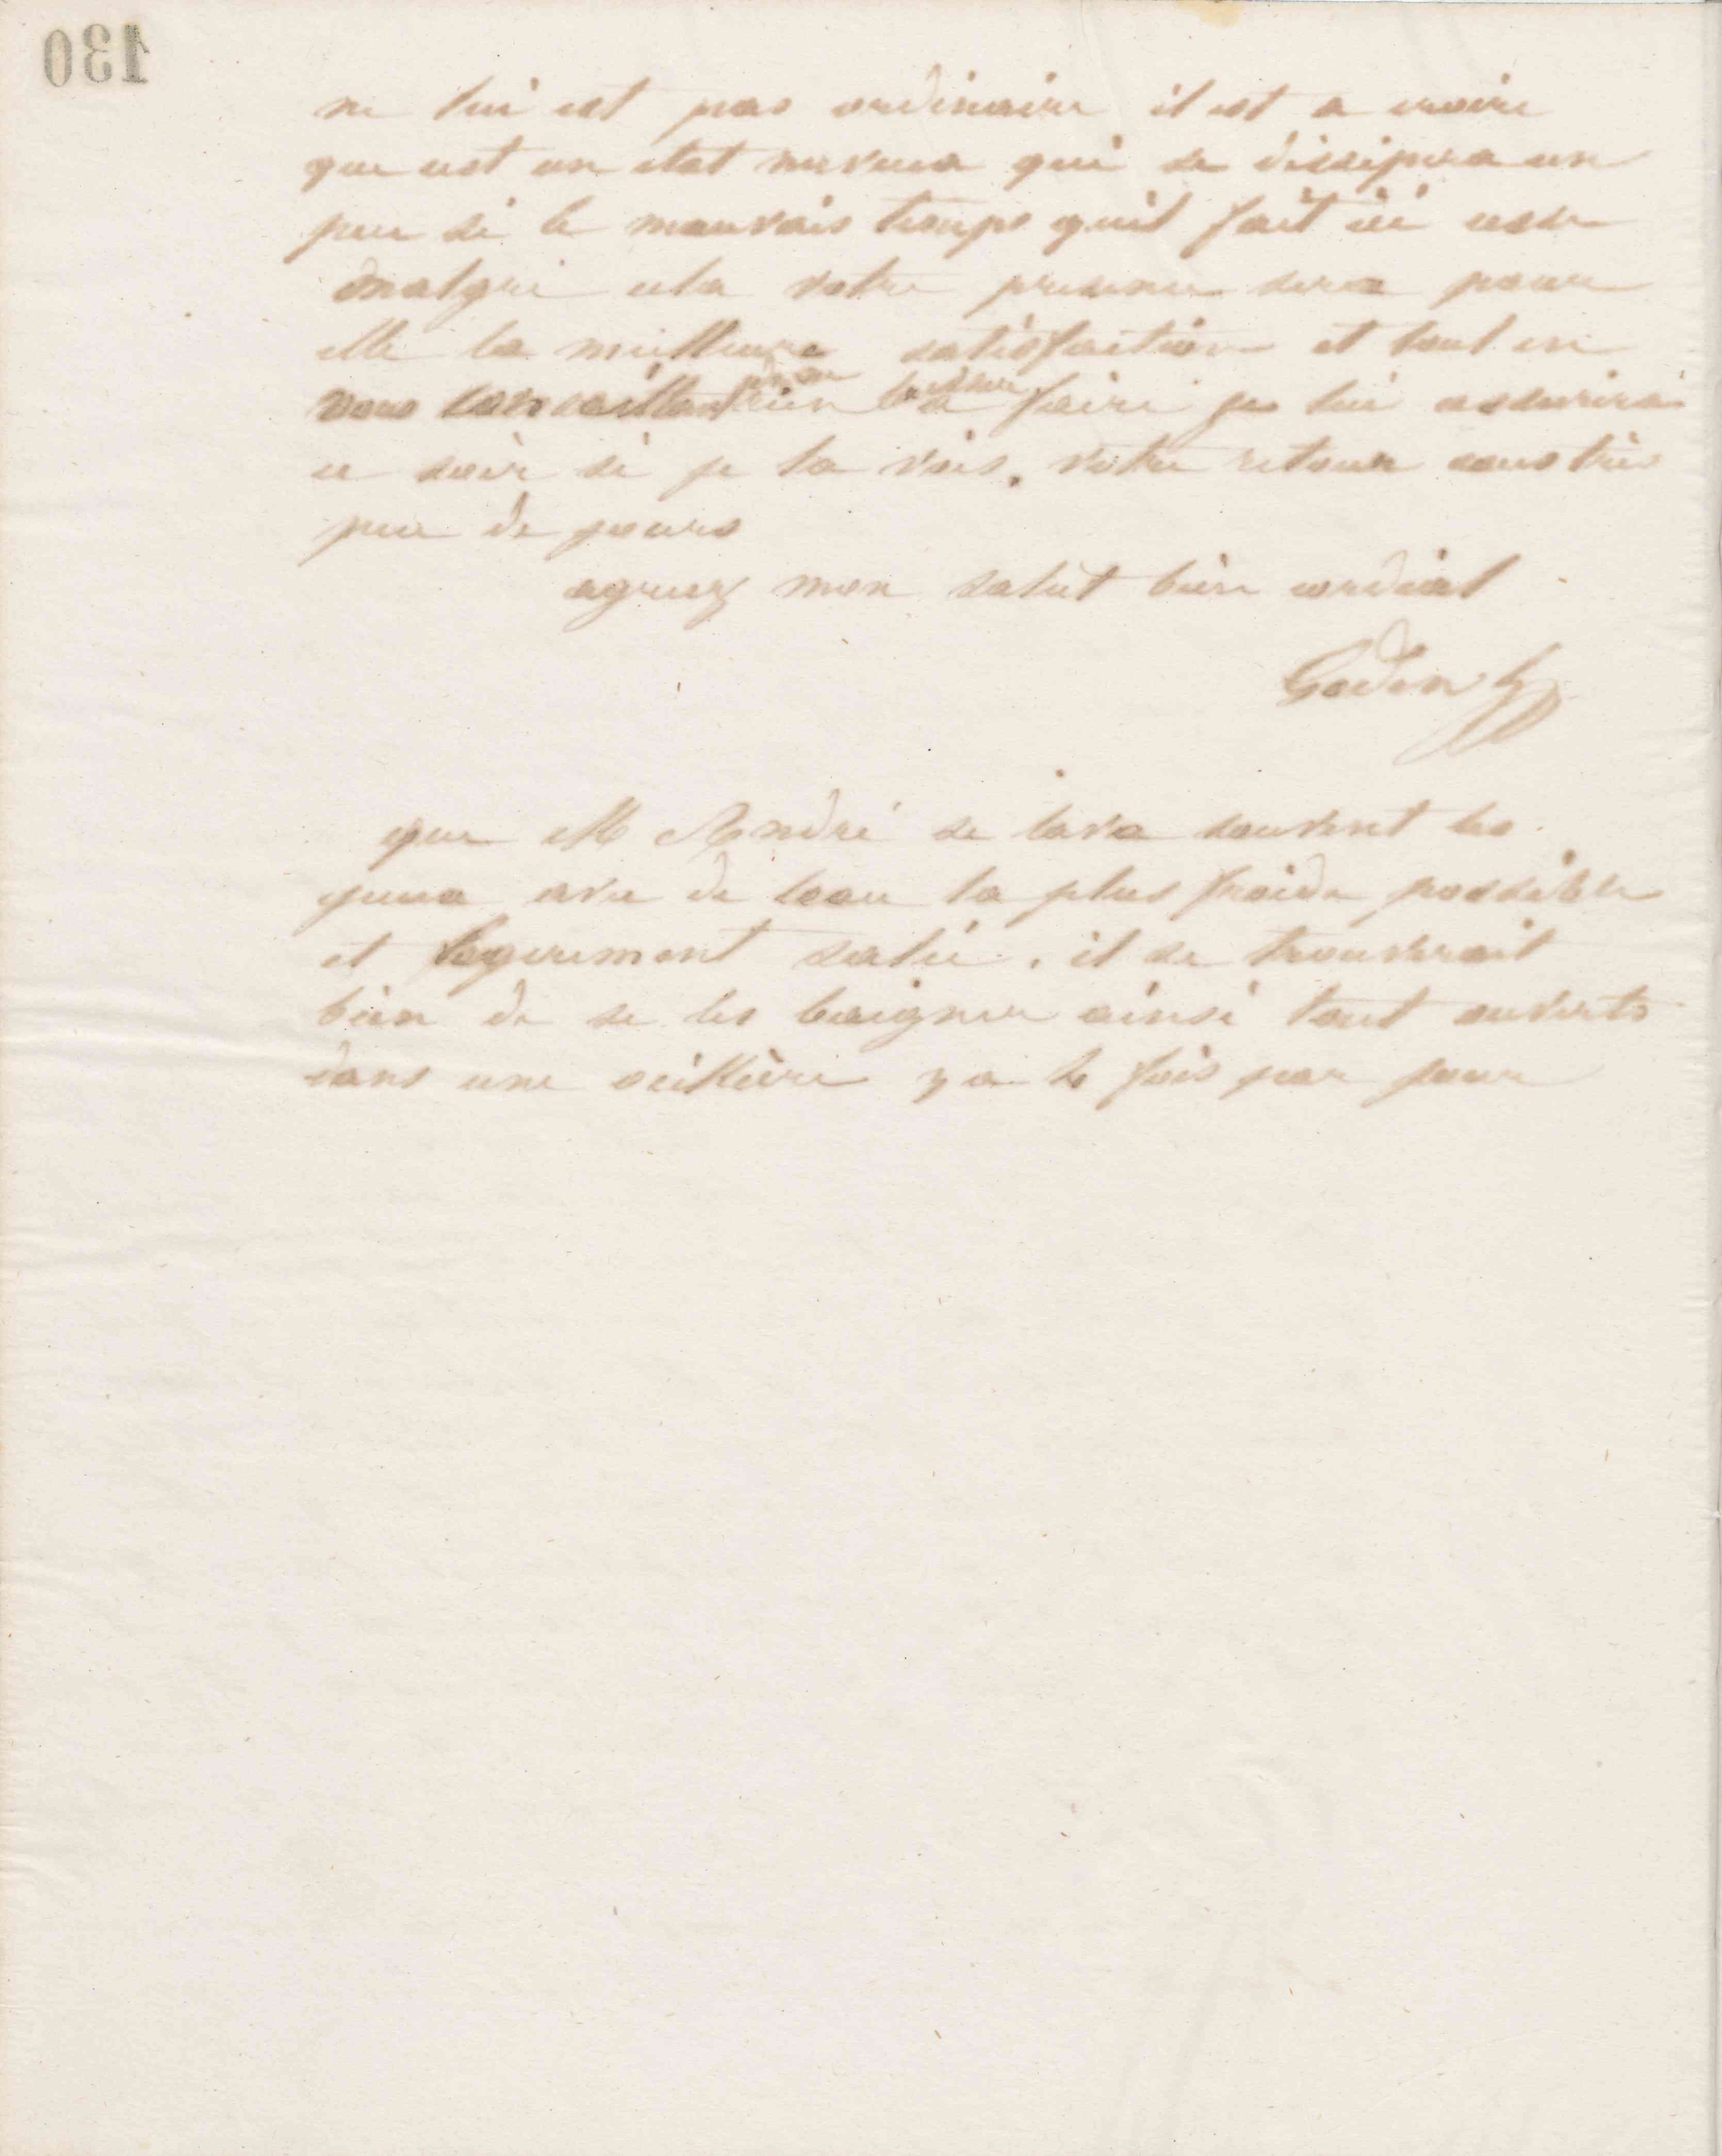 130
ne lui est pas ordinaire il est a croire
que cest un etat nerveux qui se dissipera un
peu si le mauvais temps quil fait ici cesse
malgré cela votre presence sera pour
elle la meilleure satisfaction et tout en
vous conseillant rien à faire je lui assurerai
ce soir si je la vois. votre retour sous très
peu de jours
agreez mon salut bien cordial
Godin
que M André se lave souvent les
yeux avec de leau la plus froide possible
et legerement salée. il se trouverait
bien de se les baigner ainsi tout ouverts
dans une œillère 3 a 4 fois par jour